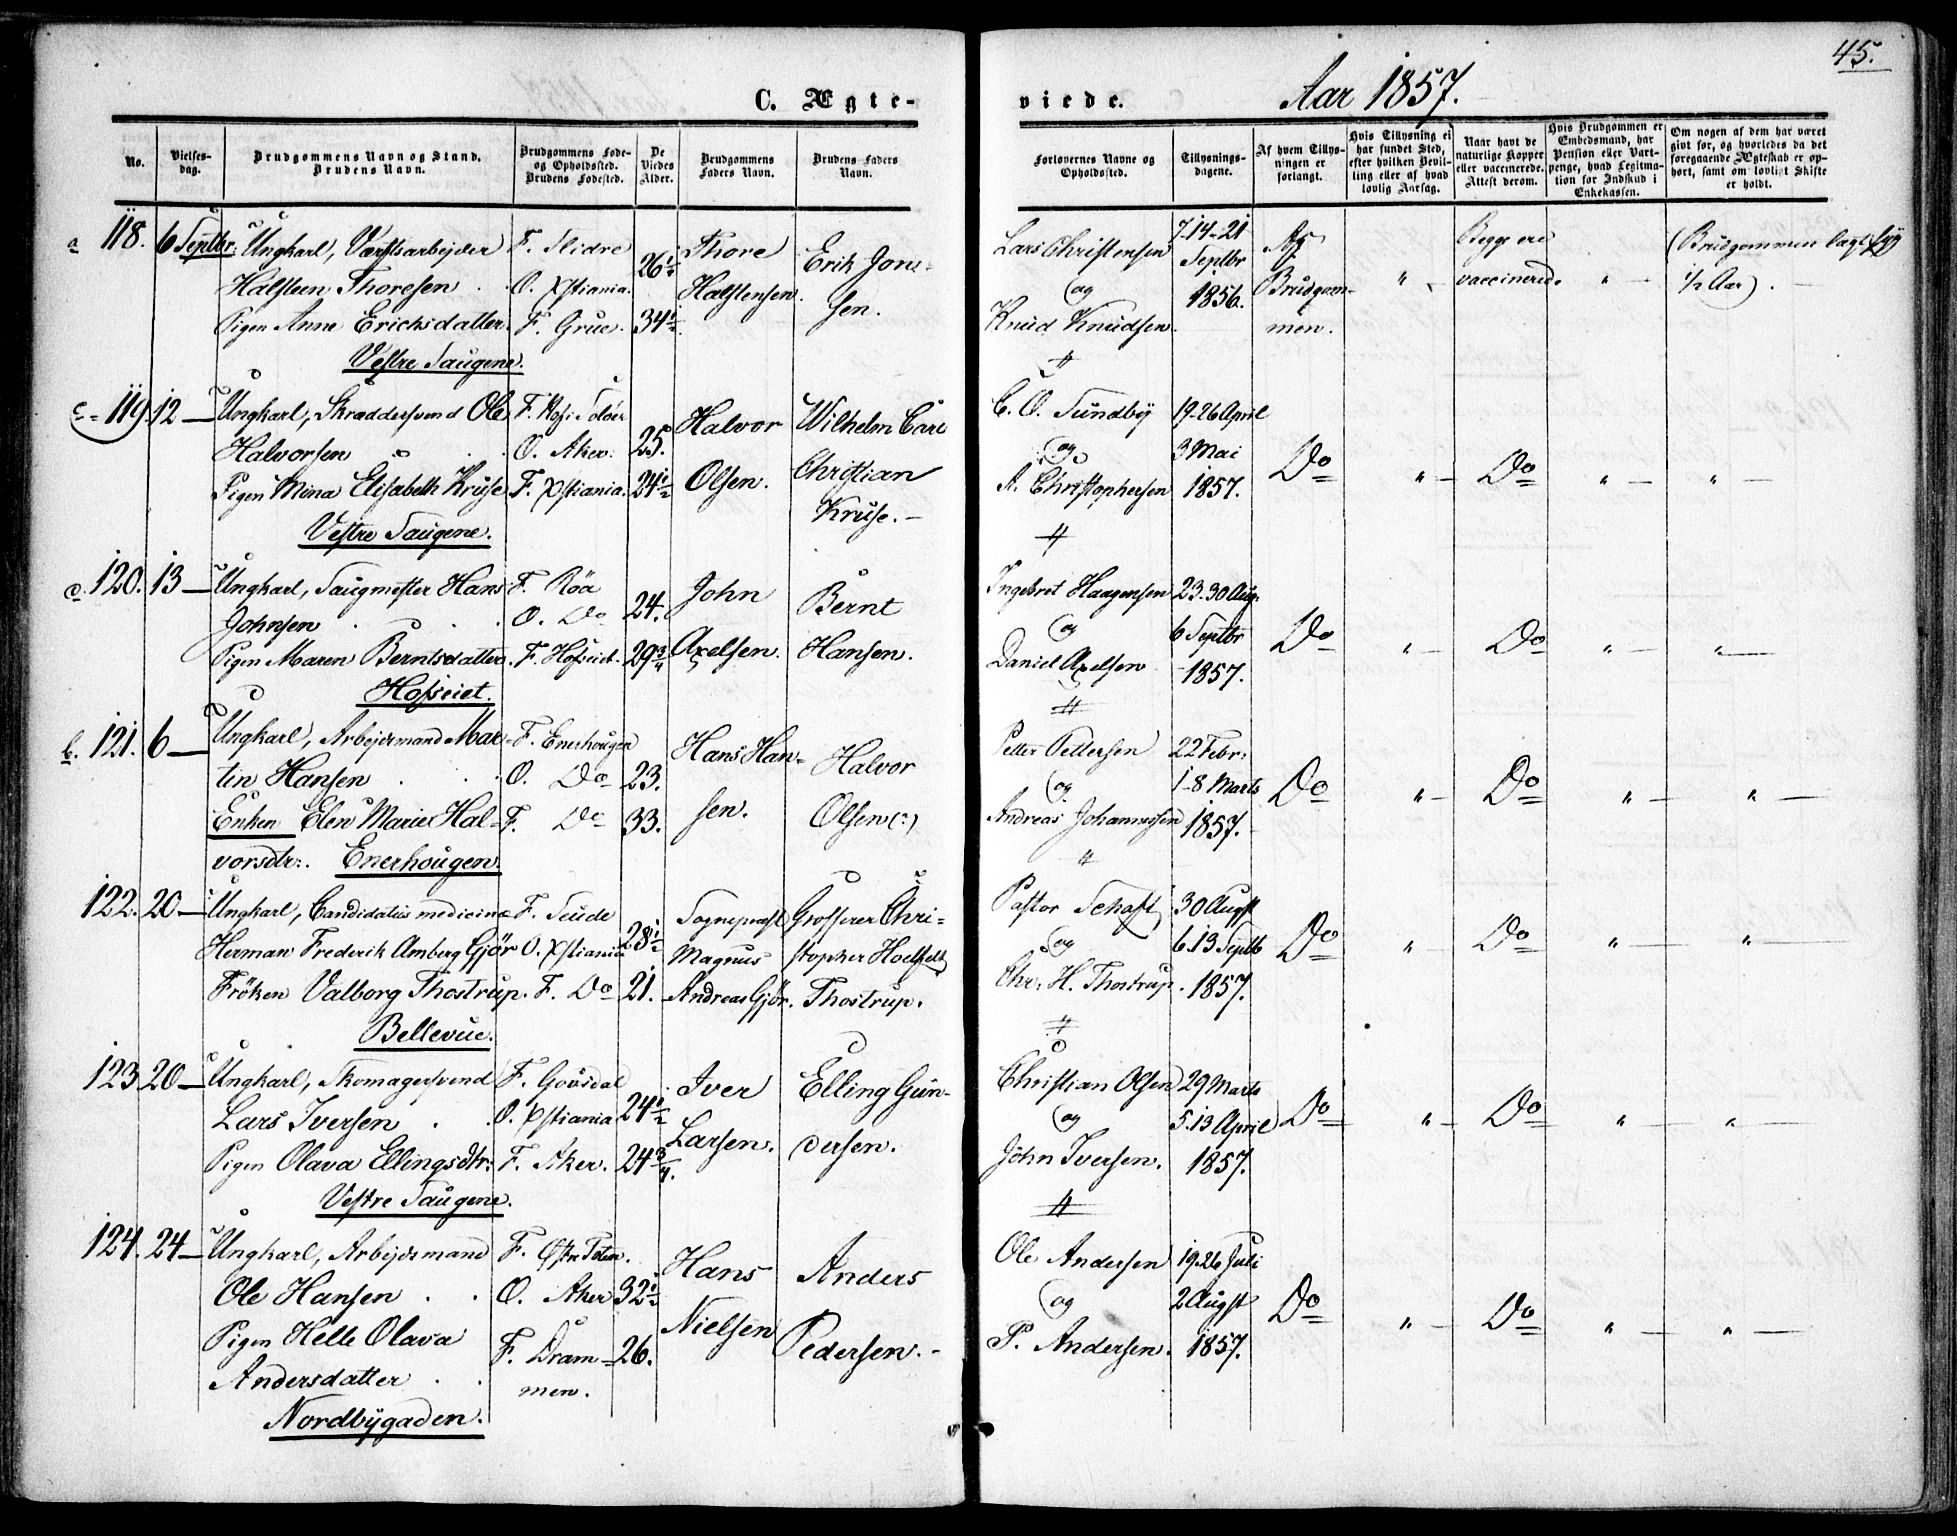 45.
C. Ægte- viede. Aar 1857.
No.
Vielses-dag.
Brudgommens Navn og Stand.
Brudens Navn.
Brudgommens Føde- og Opholdssted.
Brudens Fødested.
De Viedes Alder.
Brudgommens Faders Navn.
Brudens Faders Navn.
Forlovernes Navne og Opholdssted.
Tillysnings-dagene.
Af hvem Tillys-ningen er forlangt.
Hvis Tillysning ei har fundet Sted, efter hvilken Bevil-ling eller af hvad lovlig Aarsag.
Naar havt de naturlige Kopper eller vaccinerede. Attest derom.
Hvis Brudgommen er Embedsmand, har Pension eller Vart-penge, hvad Legitima-tion for Indskud i Enkekassen.
Om nogen af dem har været gift før, og hvorledes da det foregaaende Ægteskab er op-hørt, samt om lovligt Skifte er holdt.
a 118. 6 Septbr: Ungkarl, Værftsarbejder F. Slidre 26½ Thore Erik Jon- Lars Christensen 7-14-21 Af Begge ere (Brudgommen lagt syg
Halsteen Thoresen . O. Xstiania. Halstensen. sen. og Septbr Brudgom- " vaccinerede " — ½ Aar). —
Pigen Anne Ericksdatter. F. Grue. 34½ Knud Knudsen. 1856. men.
Vestre Saugene.
c 119. 12 — Ungkarl, Skræddersvend Ole F. Hof i Soløer Halvor Wilhelm Carl C. O. Sundby 19-26 April
Halvorsen . O. Aker. 25. og 3 Mai Do " — Do " — " —
Pigen Mina Elisabeth Kruse F. Xstiania. 24½ Olsen. Christian A. Christophersen 1857.
Vestre Saugene. Kruse. —
120. 13 — Ungkarl, Saugmester Hans F. Røa John Bernt Ingebret Haagensen 23-30 Aug.
Johnsen . . . O. Do 24. og 6 Septbr Do " — Do " — " —
Pigen Maren Berntsdatter. F. Hofseiet. 29¾ Axelsen. Hansen. Daniel Axelsen 1857.
Hofseiet.
b. 121. 6 — Ungkarl, Arbejdsmand Mar- F. Enerhougen Hans Han- Halvor Petter Pettersen 22 Febr:
tin Hansen . . O. Do 23. og 1-8 Marts Do " — Do " — " —
Enken Elen Marie Hal- F. Do 33. sen. Olsen (:) Andreas Johannessen 1857.
vorsdtr:. Enerhougen.
122. 20 — Ungkarl, Candidatus medicinæ F. Seude Sognepræst Grosserer Chri- Pastor 30 Augst
Herman Frederik Amberg Gjør O. Xstiania 28½ Magnus stopher Hoelfeldt og 6.13 Septb Do " — Do " — " —
Frøken Valborg Thostrup. F. Do 21. Andreas Gjør. Thostrup. Chr. H. Thostrup. 1857.
Bellevue.
123 20 — Ungkarl, Skomagersvend F. Gousdal Iver Elling Gun- Christian Olsen 29 Marts
Lars Iversen . . O. Xstiania 24½ og 5.13 April Do " — Do " — " —
Pigen Olava Ellingsdtr: F. Aker. 24¾. Larsen. dersen. John Iversen. 1857.
Vestre Saugene.
124. 24 — Ungkarl, Arbejdsmand F. Østre Toten. Hans Anders Ole Andersen 19.26 Juli
Ole Hansen . . O. Aker 32½ og 2 Augst Do " — Do " — " —
Pigen Helle Olava F. Dram- 26. Nielsen Pedersen. - P. Andersen. 1857.
Andersdatter . . men.
Nordbygaden.